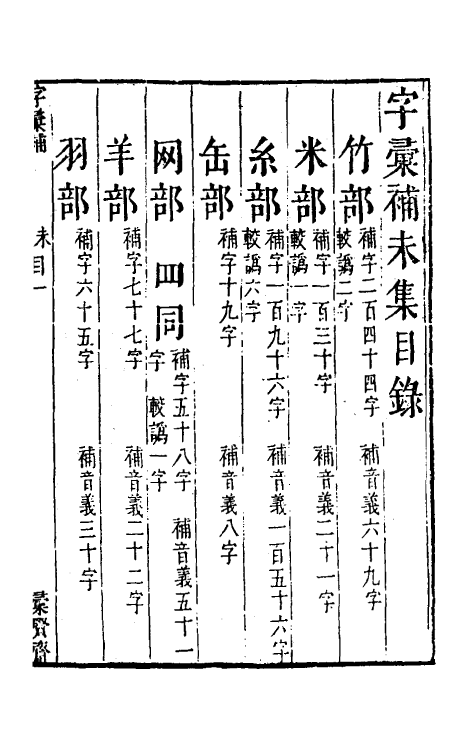 字彙補未集目錄
竹部 補字二百四十四字 補音義六十九字
較譌二字
米部 補字一百三十字 補音義二十一字
較譌一字
糸部 補字一百九十六字 補音義一百五十六字
較譌六字
缶部 補字十九字 補音義八字
网部 罒同 補字五十八字 補音義五十一
字 較譌一字
羊部 補字七十七字 補音義二十二字
羽部 補字六十五字 補音義三十字
字彙補 未目一 彙賢齋